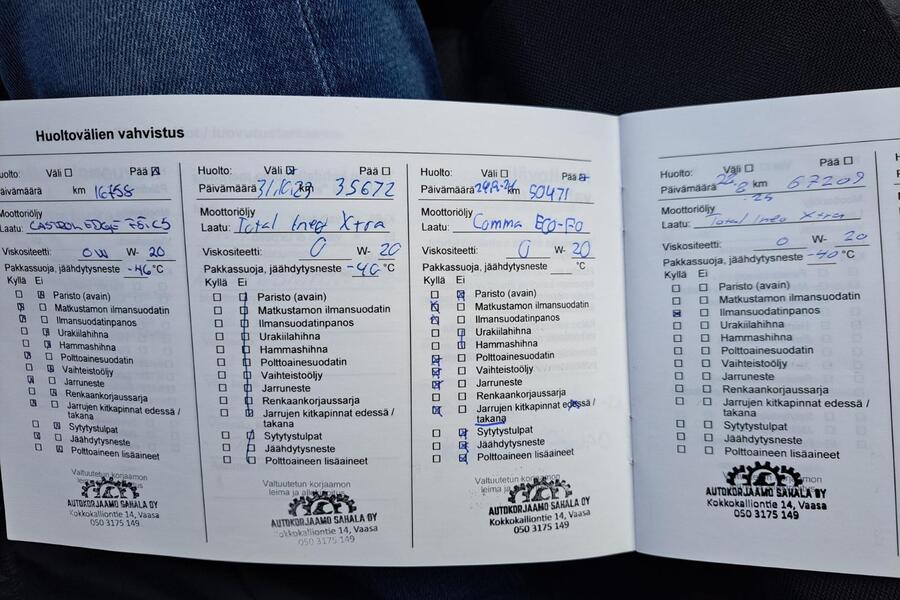 Huoltovälien vahvistus
Huolto: Väli Pää
Päivämäärä km 16758
Moottoriöljy
Laatu: CASTROL EDGE
Viskositeetti: 0W W- 20
Pakkassuoja, jäähdytysneste -46 °C
Kyllä Ei
Paristo (avain)
Matkustamon ilmansuodatin
Ilmansuodatinpanos
Urakiilahihna
Hammashihna
Polttoainesuodatin
Vaihteistoöljy
Jarruneste
Renkaankorjaussarja
Jarrujen kitkapinnat edessä /
takana
Sytytystulpat
Jäähdytysneste
Polttoaineen lisäaineet
Valtuutetun korjaamon
AUTOKORJAAMO SAHALA OY
Kokkokalliontie 14, Vaasa
050 3175 149
Huolto: Väli Pää
Päivämäärä km 35672
Moottoriöljy
Laatu: Total Ineo Xtra
Viskositeetti: 0 W- 20
Pakkassuoja, jäähdytysneste -40 °C
Kyllä Ei
Paristo (avain)
Matkustamon ilmansuodatin
Ilmansuodatinpanos
Urakiilahihna
Hammashihna
Polttoainesuodatin
Vaihteistoöljy
Jarruneste
Renkaankorjaussarja
Jarrujen kitkapinnat edessä /
takana
Sytytystulpat
Jäähdytysneste
Polttoaineen lisäaineet
Valtuutetun korjaamon
AUTOKORJAAMO SAHALA OY
Kokkokalliontie 14, Vaasa
050 3175 149
Huolto: Väli Pää
Päivämäärä km 50471
Moottoriöljy
Laatu: Comma
Viskositeetti: 0 W- 20
Pakkassuoja, jäähdytysneste °C
Kyllä Ei
Paristo (avain)
Matkustamon ilmansuodatin
Ilmansuodatinpanos
Urakiilahihna
Hammashihna
Polttoainesuodatin
Vaihteistoöljy
Jarruneste
Renkaankorjaussarja
Jarrujen kitkapinnat edessä /
takana
Sytytystulpat
Jäähdytysneste
Polttoaineen lisäaineet
Valtuutetun korjaamon
AUTOKORJAAMO SAHALA OY
Kokkokalliontie 14, Vaasa
050 3175 149
Huolto: Väli Pää
Päivämäärä km 67209
Moottoriöljy
Laatu: Total Ineo Xtra
Viskositeetti: 0 W- 20
Pakkassuoja, jäähdytysneste -40 °C
Kyllä Ei
Paristo (avain)
Matkustamon ilmansuodatin
Ilmansuodatinpanos
Urakiilahihna
Hammashihna
Polttoainesuodatin
Vaihteistoöljy
Jarruneste
Renkaankorjaussarja
Jarrujen kitkapinnat edessä /
takana
Sytytystulpat
Jäähdytysneste
Polttoaineen lisäaineet
AUTOKORJAAMO SAHALA OY
Kokkokalliontie 14, Vaasa
050 3175 149